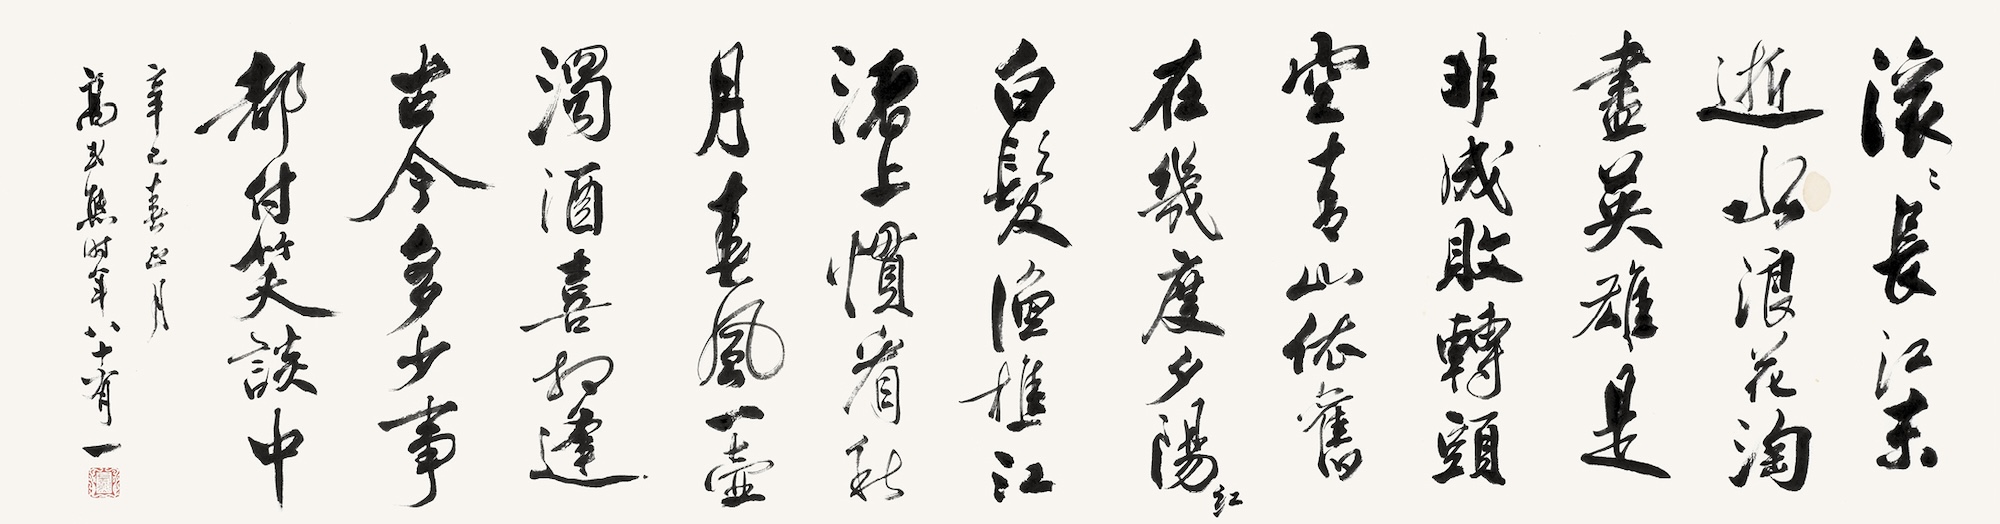 滾〻長江東
逝水浪花淘
盡英雄是
非成敗轉頭
空青山依舊
在幾度夕陽紅
白髮漁樵江
渚上慣看秋
月春風一壺
濁酒喜相逢
古今多少事
都付笑談中
辛巳春正月
高式熊時年八十有一